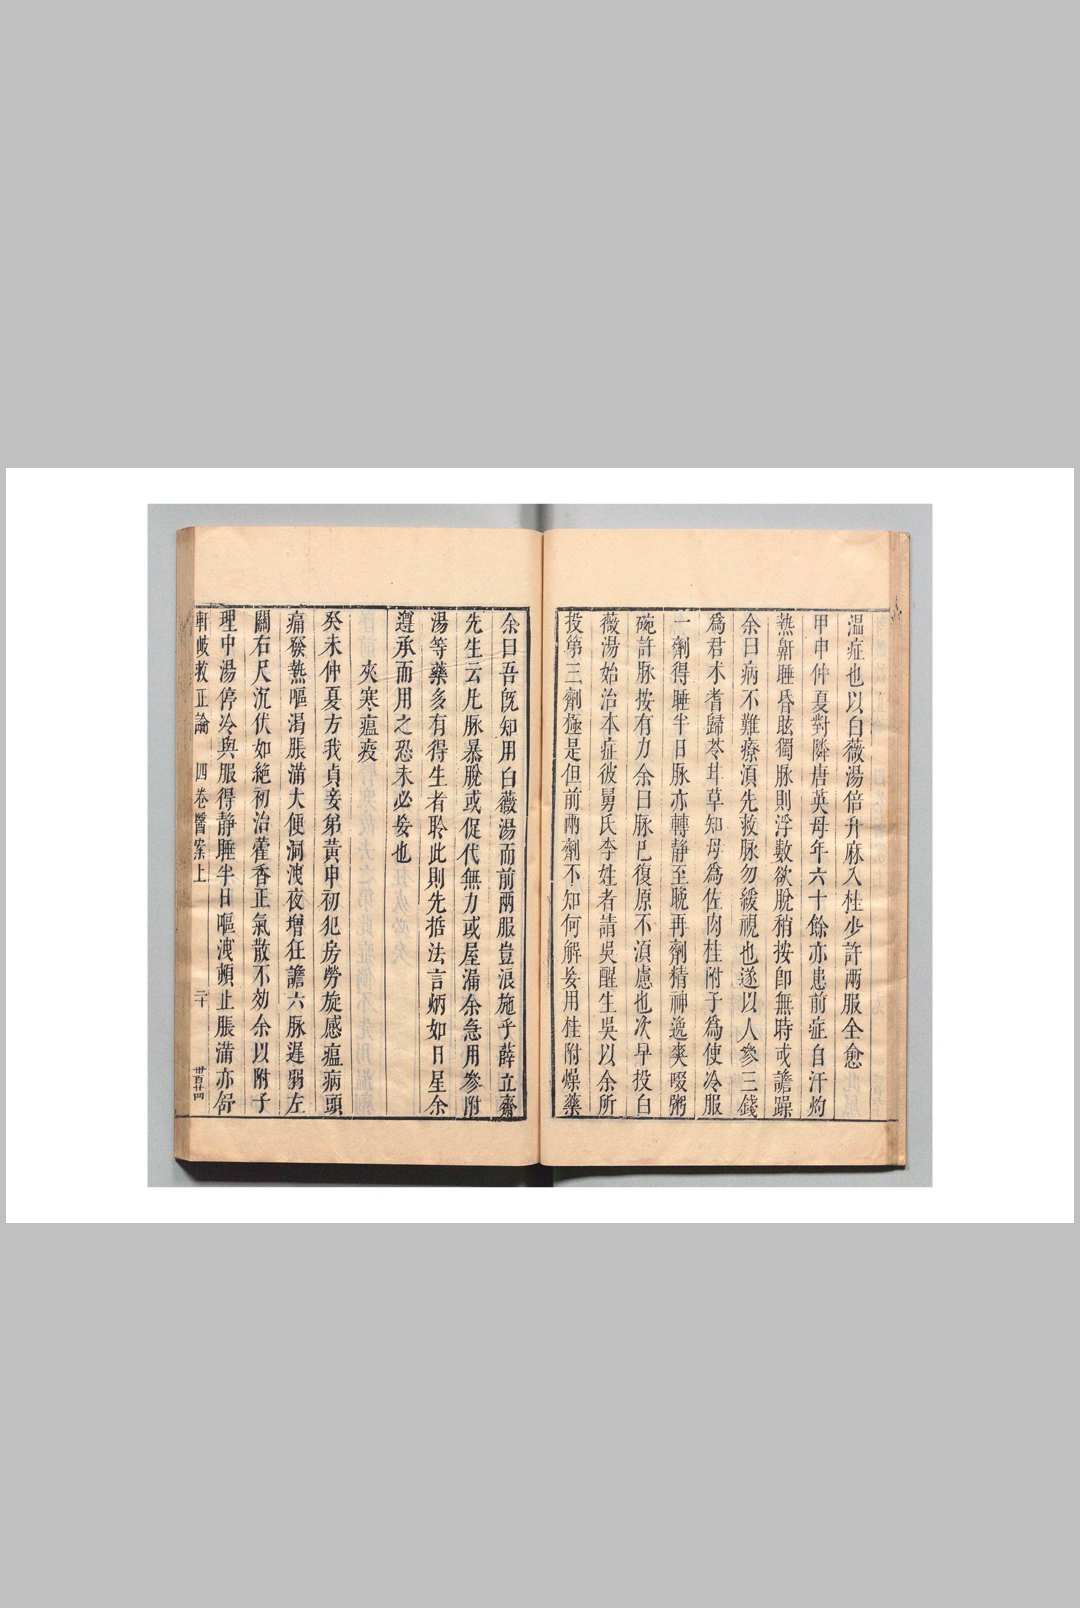 温症也以白薇湯倍升麻入桂少許兩服全愈
甲申仲夏對隣唐英母年六十餘亦患前症自汗灼
熱鼾睡昏眩獨脉則浮數欲脫稍按卽無時或譫躁
余曰病不難療湏先救脉勿緩視也遂以人參三錢
爲君术耆歸苓甘草知母爲佐肉桂附子爲使冷服
一劑得睡半日脉亦轉静至晚再劑精神逸爽啜粥
碗許脉按有力余曰脉已復原不湏慮也次早投白
薇湯始治本症彼舅氏李姓者請吳醒生吳以余所
投第三劑極是但前兩劑不知何解妄用桂附燥藥
余曰吾旣知用白薇湯而前兩服豈浪施乎薛立齋
先生云凡脉暴脫或促代無力或屋漏余急用參附
湯等藥多有得生者聆此則先哲法言炳如日星余
遵承而用之恐未必妄也
夾寒瘟疫
癸未仲夏方我貞妾弟黃申初犯房勞旋感瘟病頭
痛發熱嘔渴脹滿大便洞洩夜增狂譫六脉遲弱左
關右尺沉伏如絶初治藿香正氣散不効余以附子
理中湯停冷與服得静睡半日嘔洩頓止脹滿亦舒
軒岐救正論 四卷醫案上 二十